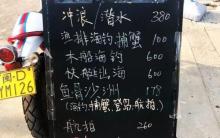 冲浪 潜水 380
渔排海钓.捕蟹 100
木船海钓 600
快艇出海 600
鱼骨沙洲 178
(海钓 捕蟹.登岛.航拍.)
航拍 260
闽·D
YM126